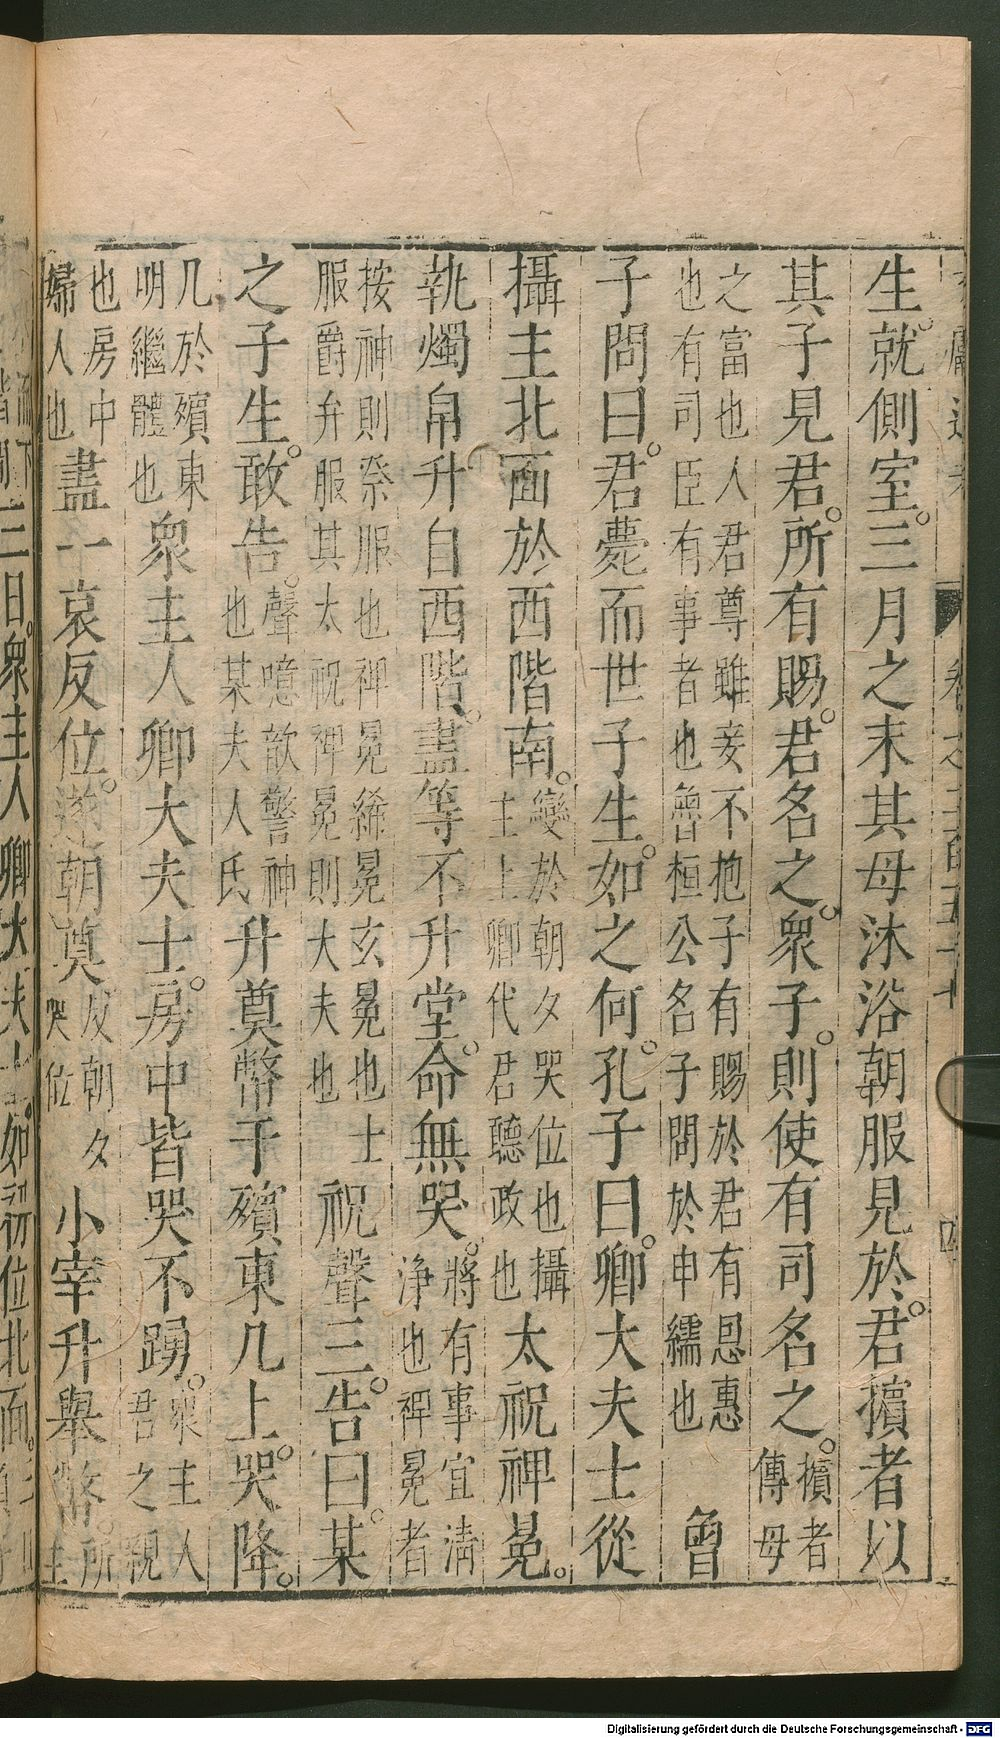 生就側室三月之末其母沐浴朝服見於君擯者以
其子見君所有賜君名之衆子則使有司名之擯者
傳母
之富也人君尊雖妾不抱子有賜於君有恩惠
也有司臣有事者也魯桓公名子問於申繻也
曾
子問曰君薨而世子生如之何孔子曰卿大夫士從
攝主北面於西階南變於朝夕哭位也攝
主上卿代君聽政也
太祝裨冕
執燭帛升自西階盡等不升堂命無哭將有事宜清
淨也裨冕者
按神則祭服也裨冕絺冕玄冕也士
服爵弁服其太祝裨冕則大夫也
祝聲三告曰某
之子生敢告聲噫歆警神
也某夫人氏
升奠幣于殯東几上哭降
几於殯東
明繼體也
衆主人卿大夫士房中皆哭不踴衆主人
君之親
也房中
婦人也
盡一哀反位遂朝奠反朝夕
哭位
小宰升舉幣所
主
三日衆主人卿大夫士如初位北面
Digitalisierung gefördert durch die Deutsche Forschungsgemeinschaft - DFG